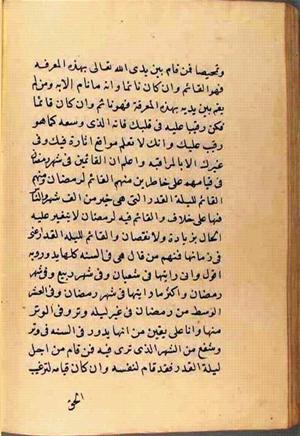 وتحيصا فمن قام بين يدى الله تعالى بهذه المعرفه
فهو القائم وان كان نائما وانه مانام الابه ومن لم
يقم بين يديه بهذه المعرفة فهو نائم وان كان قائما
فكن رقيبا عليه فى قلبك فانه الذى وسعه كما هو
رقيب عليك وانك لا تعلم مواقع اثارة فيك وفى
غيرك الا بالمراقبه واعلم ان القائمين فى شهر رمضان
فى قيامهم على خاطرين منهم القائم لرمضان ومنهم
القائم لليلة القدر التى هى خير من الف شهر والناس
فيها على خلاف والقائم فيه لرمضان لا يتغير عليه
الحال بزيادة ولا نقصان والقائم لليلة القدر
فى زمانها فمنهم من قال هى فى السنه كلها يدور وبه
اقول وانى رايتها فى شعبان وفى شهر ربيع وفى شهر
رمضان واكثر ما رايتها فى شهر رمضان وفى العشر
الاوسط من رمضان فى غير ليلة وتر وفى الوتر
منها وانا على يقين من انها يدور فى السنه فى وتر
وشفع من الشهر الذى ترى فيه فمن قام من اجل
ليلة القدر فقد قام لنفسه وان كان قيامه لترغيب
الحق